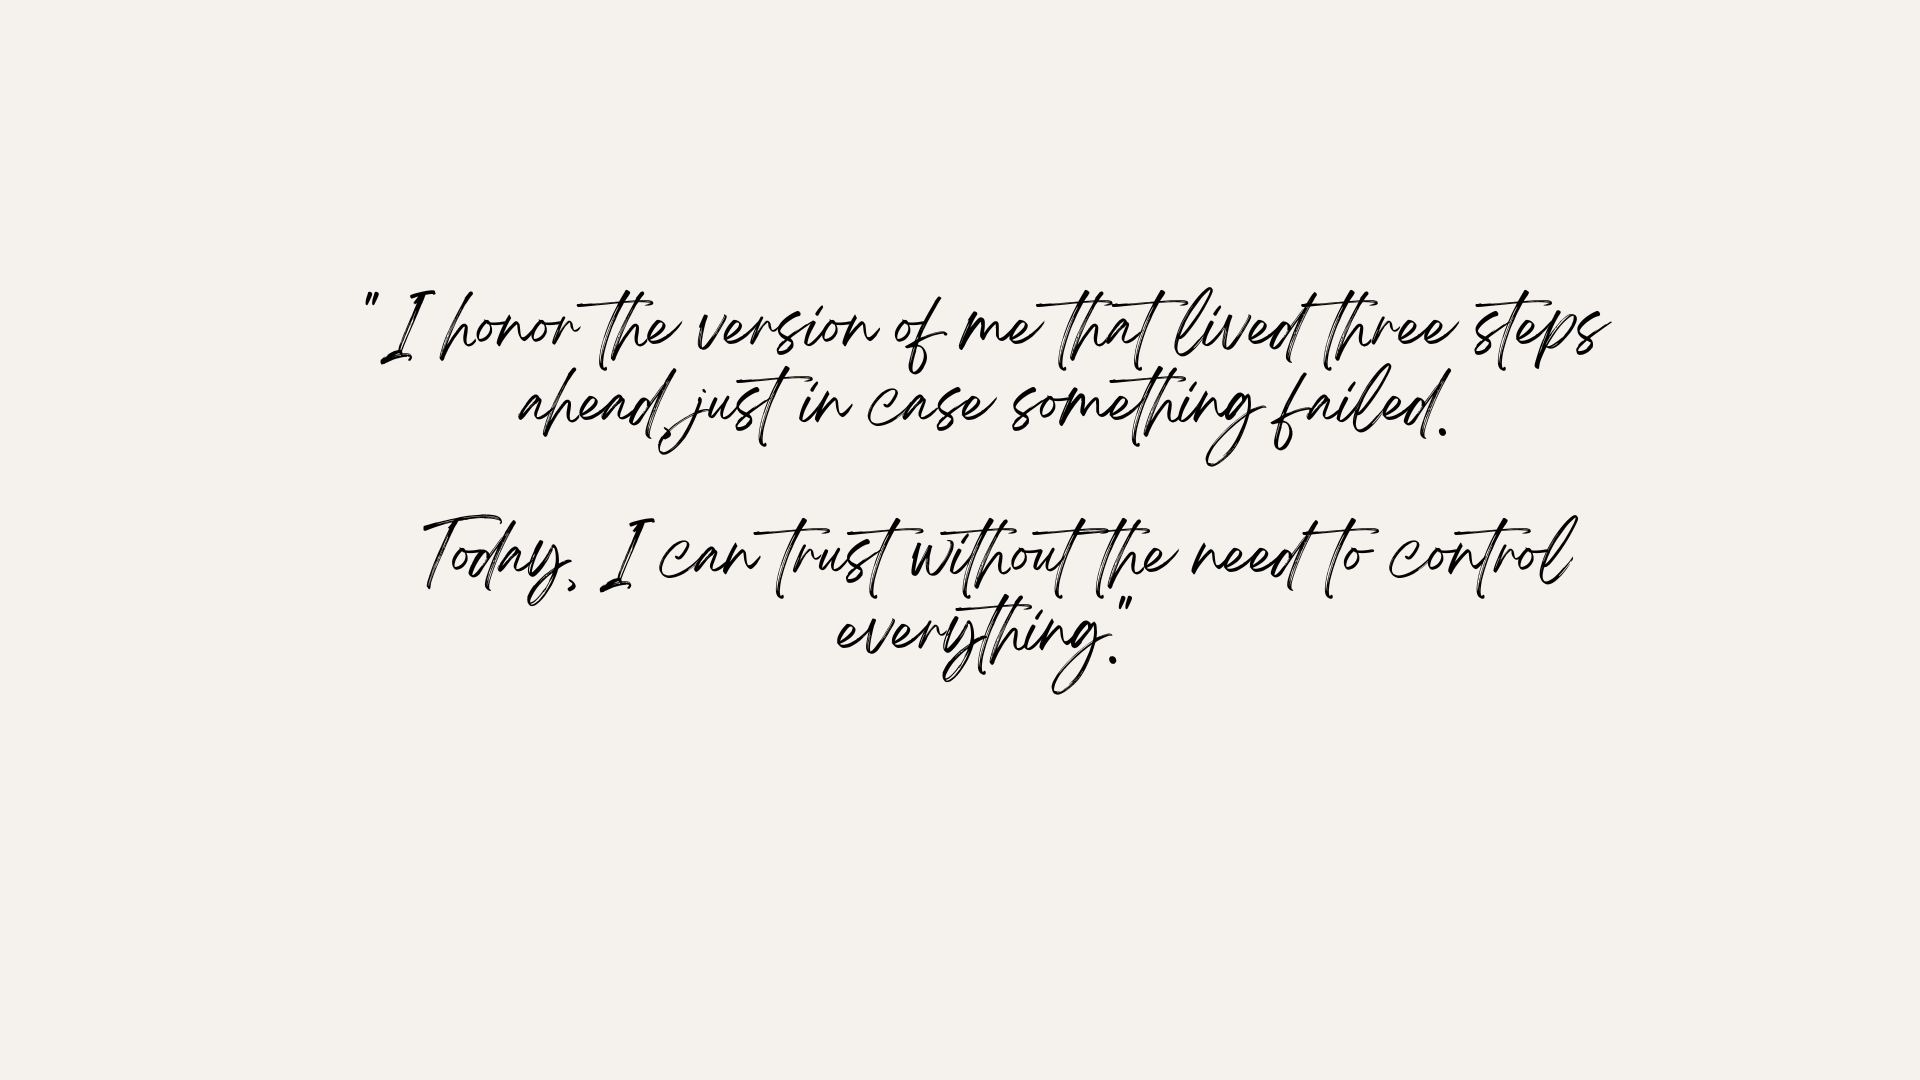 "I honor the version of me that lived three steps
ahead, just in case something failed.
Today, I can trust without the need to control
everything."